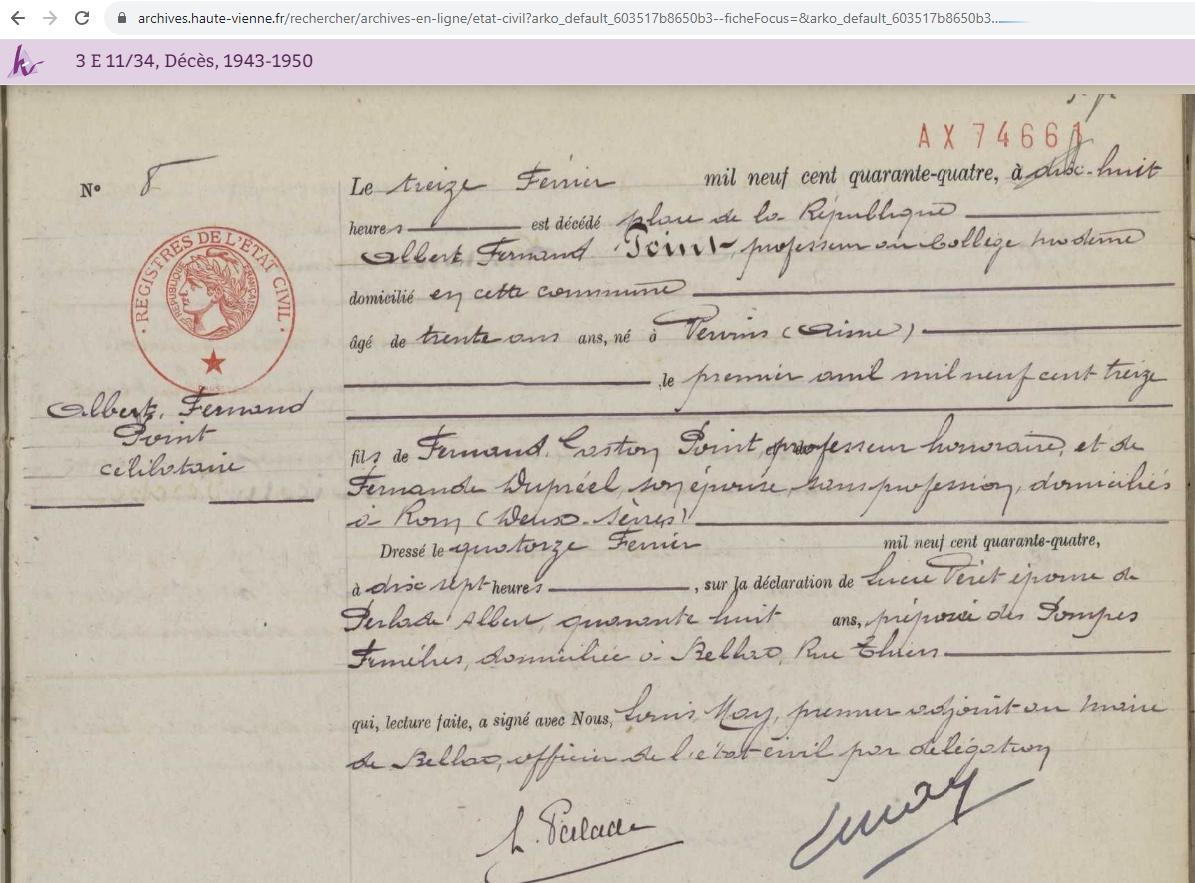 archives.haute-vienne.fr/rechercher/archives-en-ligne/etat-civil?arko_default_603517b8650b3--ficheFocus=&arko_default_603517b8650b3...
3 E 11/34, Décès, 1943-1950
AX 74661
N° 8
Le treize Février mil neuf cent quarante-quatre, à dix-huit
heures est décédé place de la République
Albert, Fernand Point, professeur au Collège moderne
domicilié en cette commune
âgé de trente ans ans, né à Vervins (Aisne)
, le premier avril mil neuf cent treize
REGISTRES DE L'ETAT CIVIL
REPUBLIQUE FRANÇAISE
Albert, Fernand
Point
célibataire
fils de Fernand, Gaston Point, professeur honoraire, et de
Fernande Dupréel, son épouse, sans profession, domiciliés
à Rom (Deux-Sèvres)
Dressé le quatorze Février mil neuf cent quarante-quatre,
à dix sept heures, sur la déclaration de Lucie Péret épouse de
Albert, quarante huit ans, préposée des Pompes
Funèbres, domiciliée à Bellac, Rue Thiers
qui, lecture faite, a signé avec Nous, Louis May, premier adjoint au maire
de Bellac, officier de l'état-civil par délégation
LMay